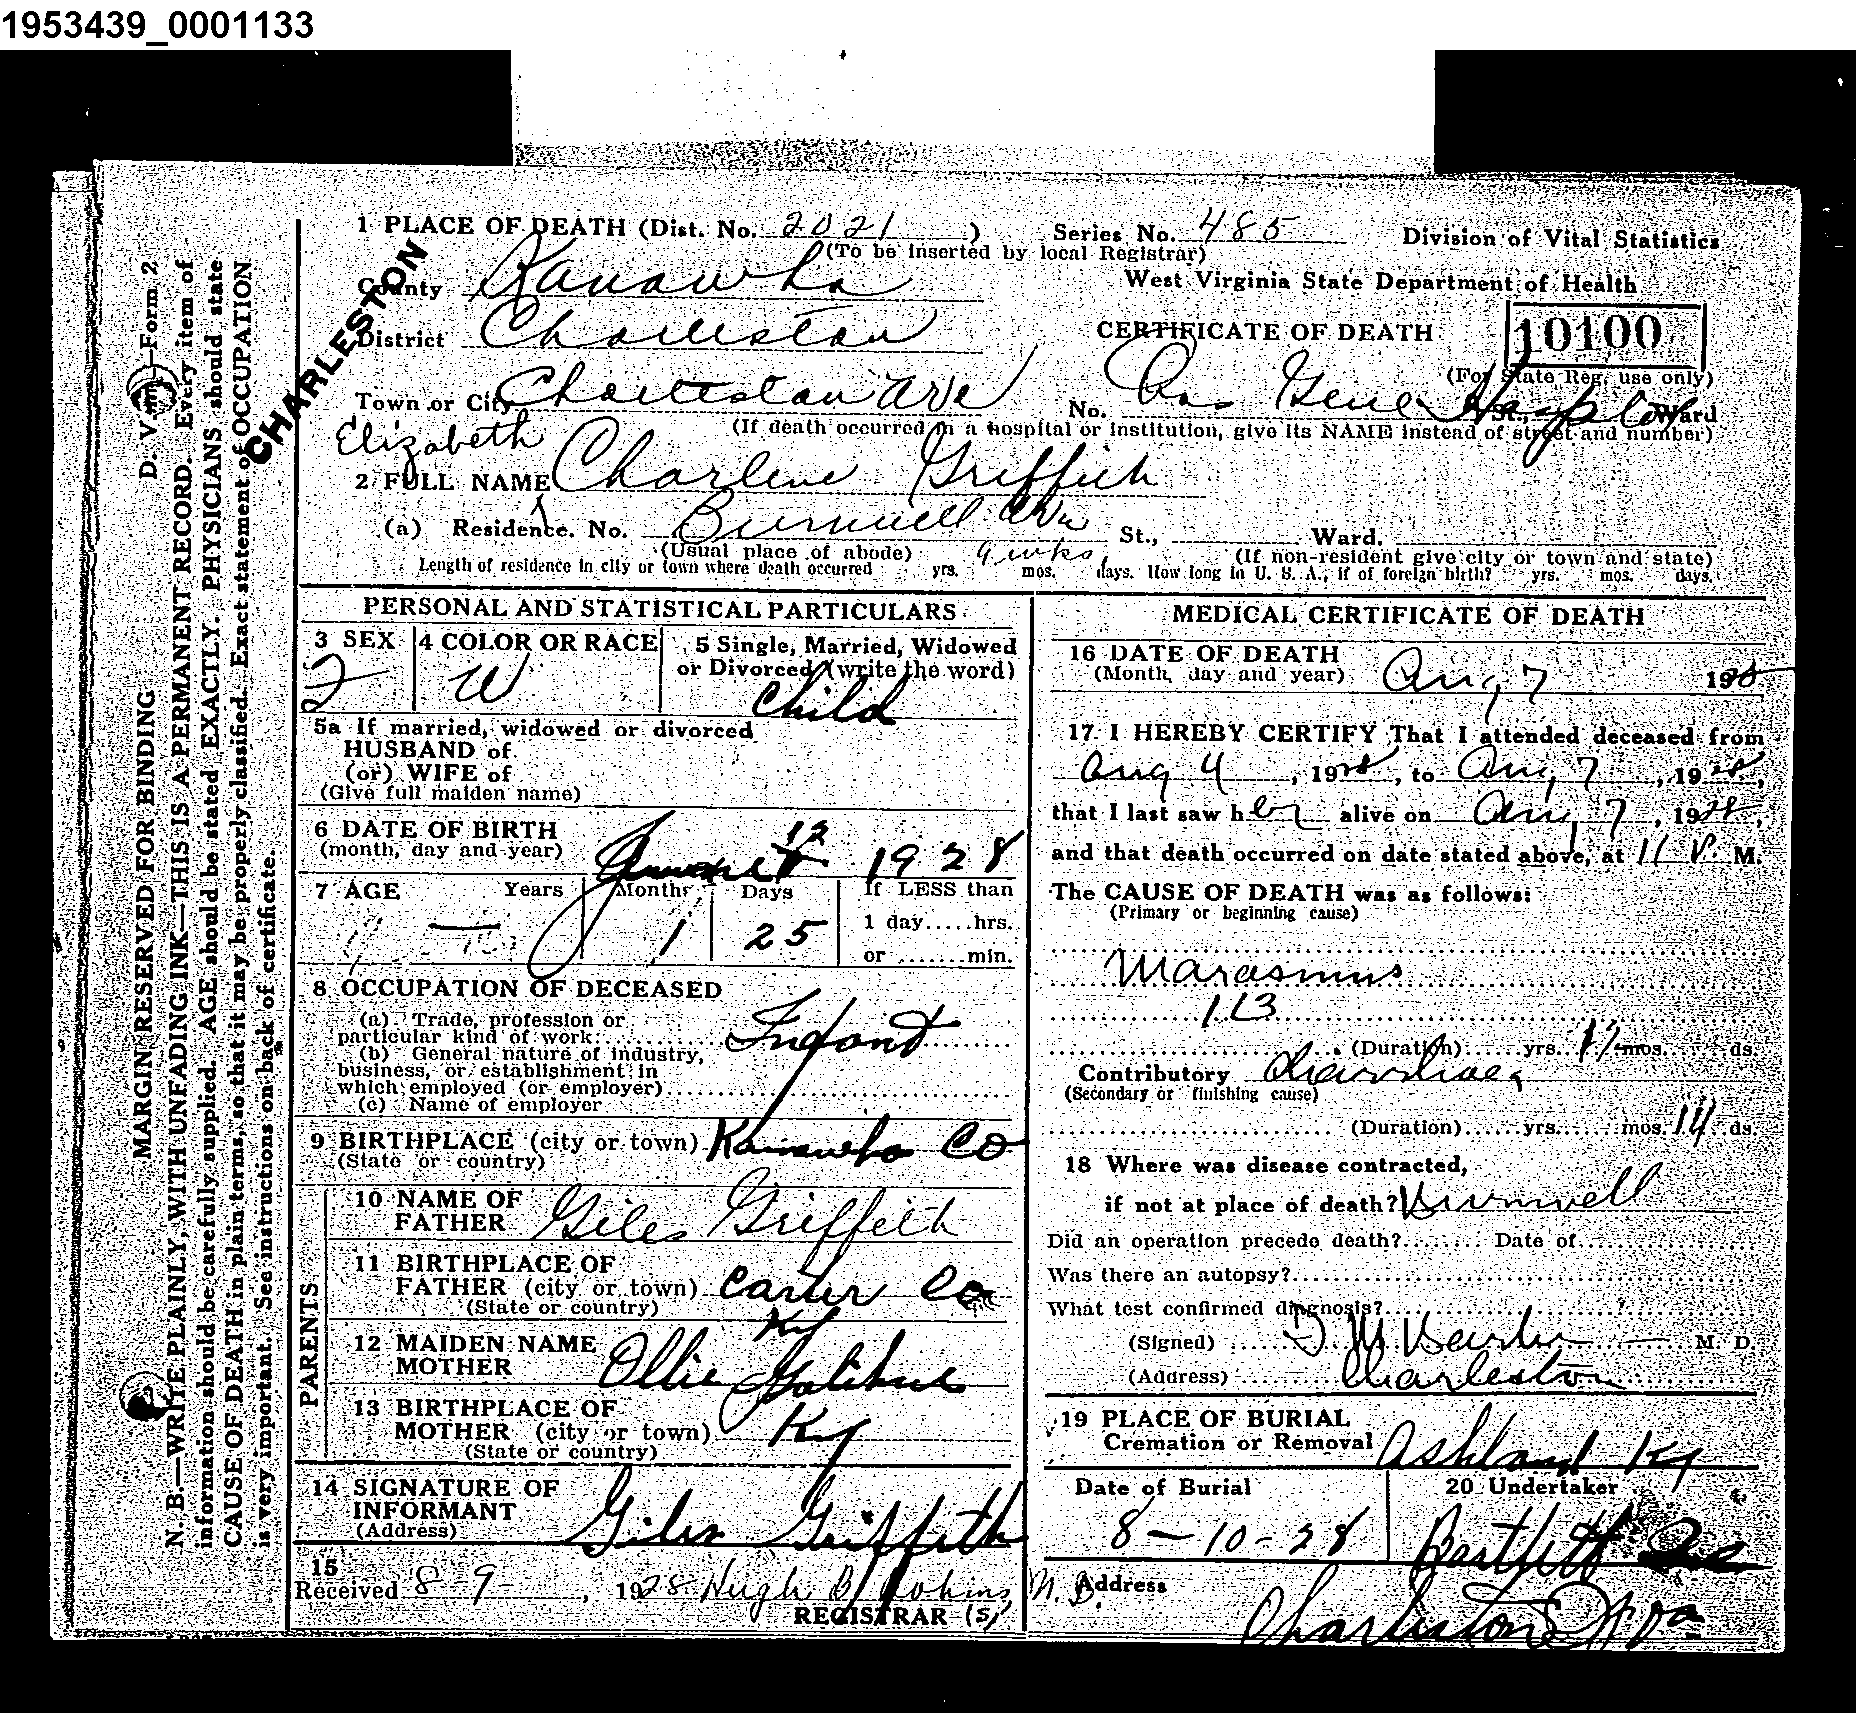 1953439_0001133
1 PLACE OF DEATH (Dist. No. 2021 ) Series No. 485 Division of Vital Statistics
(To be inserted by local Registrar)
County Kanawha West Virginia State Department of Health
CHARLESTON
District Charleston CERTIFICATE OF DEATH 10100
(For State Reg. use only)
Town or City Charleston Ave No. Gene Hospital St., Ward
(If death occurred in a hospital or institution, give its NAME instead of street and number)
Elizabeth
2 FULL NAME Charlene Griffith
(a) Residence. No. Burnwell Ave St., Ward.
(Usual place of abode) 9 wks, (If non-resident give city or town and state)
Length of residence in city or town where death occurred yrs. mos. days. How long in U. S. A., if of foreign birth? yrs. mos. days.
PERSONAL AND STATISTICAL PARTICULARS
3 SEX 4 COLOR OR RACE 5 Single, Married, Widowed
or Divorced (write the word)
F W Child
5a If married, widowed or divorced
HUSBAND of
(or) WIFE of
(Give full maiden name)
6 DATE OF BIRTH
(month, day and year) June 12 1928
7 AGE Years Months Days If LESS than
1 day.....hrs.
— 1 25
or .......min.
8 OCCUPATION OF DECEASED
(a) Trade, profession or
particular kind of work Infant
(b) General nature of industry,
business, or establishment in
which employed (or employer)
(c) Name of employer
9 BIRTHPLACE (city or town) Kanawha Co
(State or country)
PARENTS
10 NAME OF
FATHER Giles Griffeith
11 BIRTHPLACE OF
FATHER (city or town) Carter Co
(State or country) Ky
12 MAIDEN NAME
MOTHER Ollie
13 BIRTHPLACE OF
MOTHER (city or town) Ky
(State or country)
14 SIGNATURE OF
INFORMANT Giles Griffeth
(Address)
15
Received 8-9-, 1928 Hugh B Robins M.D.
REGISTRAR (s)
MEDICAL CERTIFICATE OF DEATH
16 DATE OF DEATH
(Month, day and year) Aug 7 1928
17 I HEREBY CERTIFY That I attended deceased from
Aug 4, 1928, to Aug 7, 1928,
that I last saw her alive on Aug 7, 1928,
and that death occurred on date stated above, at 11 P. M.
The CAUSE OF DEATH was as follows:
(Primary or beginning cause)
Marasmus
113
(Duration) yrs. 1½ mos. ds.
Contributory Diarrhoea
(Secondary or finishing cause)
(Duration) yrs. mos. 14 ds.
18 Where was disease contracted,
if not at place of death? Burnwell
Did an operation precede death? Date of
Was there an autopsy?
What test confirmed diagnosis?
(Signed) M. D.
(Address) Charleston
19 PLACE OF BURIAL
Cremation or Removal Ashland Ky
Date of Burial 20 Undertaker
8-10-28 Bartlett
Address
Charleston W Va
D. V. S.—Form 2
MARGIN RESERVED FOR BINDING
N. B.—WRITE PLAINLY, WITH UNFADING INK—THIS IS A PERMANENT RECORD. Every item of
information should be carefully supplied. AGE should be stated EXACTLY. PHYSICIANS should state
CAUSE OF DEATH in plain terms, so that it may be properly classified. Exact statement of OCCUPATION
is very important. See instructions on back of certificate.